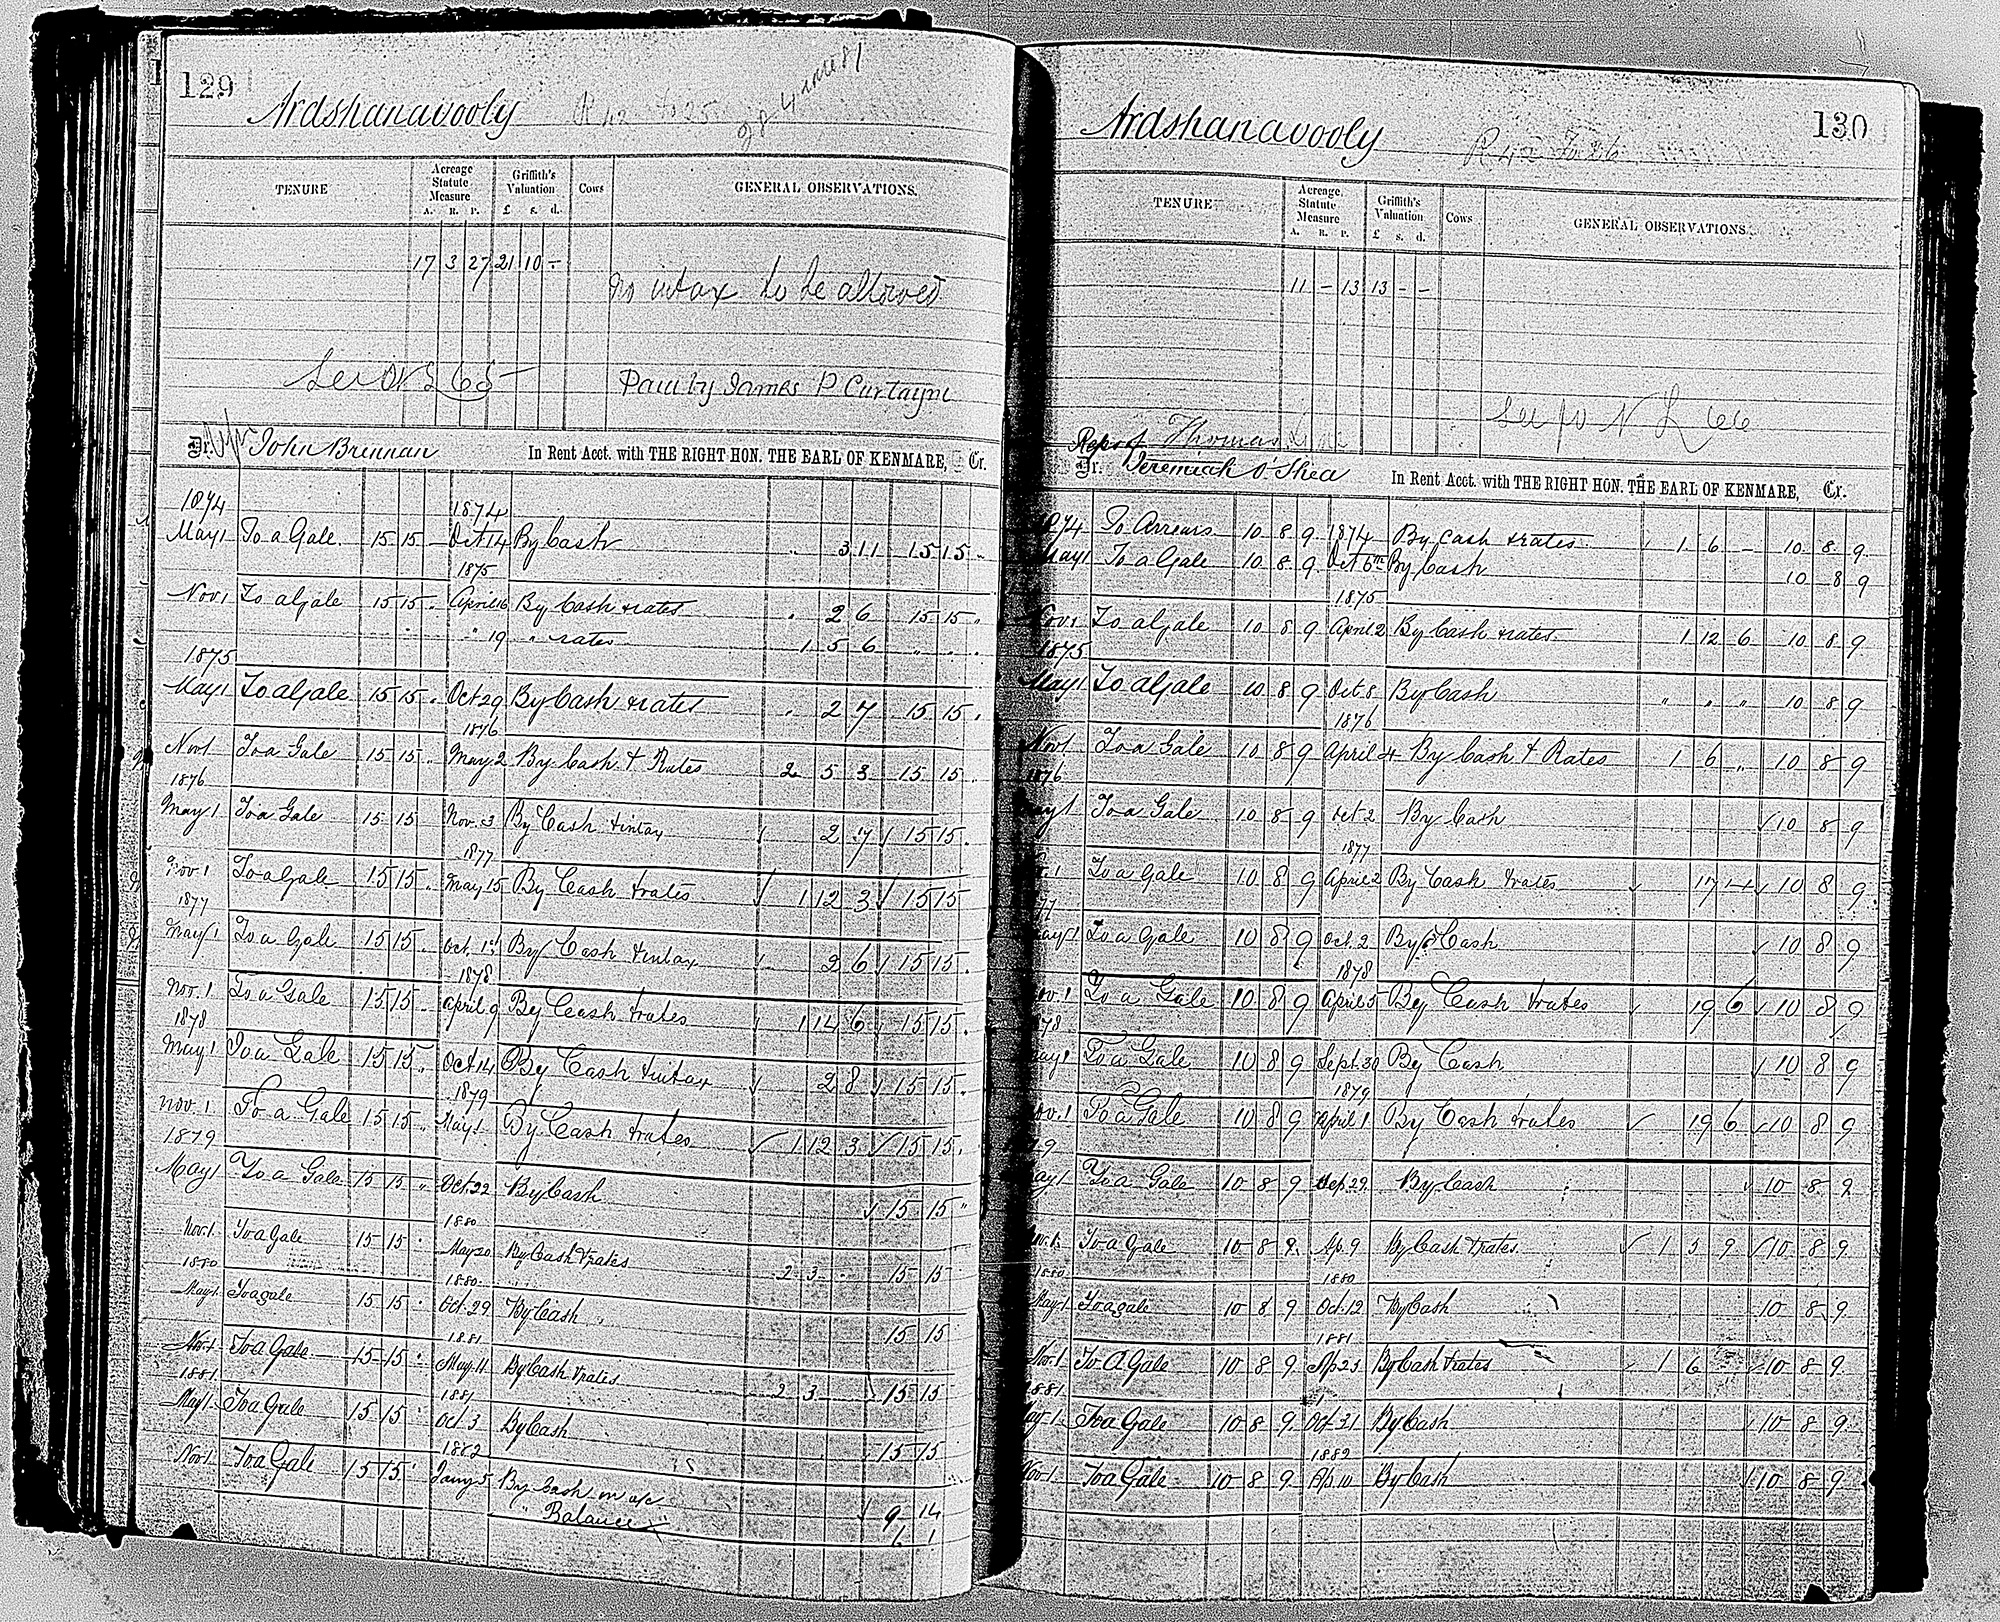 129
Ardshanavooly R 42 fo 25
TENURE Acreage Statute Measure A. R. P. Griffith's Valuation £ s. d. Cows GENERAL OBSERVATIONS.
17 3 27 21 10 -
no intax to be allowed
Paid by James P Curtayne
Dr. John Brennan In Rent Acct. with THE RIGHT HON. THE EARL OF KENMARE, Cr.
1874 1874
May 1 To a Gale 15 15 - Oct 14 By Cash 3 11 15 15 "
1875
Nov 1 To a Gale 15 15 " April 16 By Cash & rates " 2 6 15 15 "
" 19 " rates 1 5 6 " " "
1875
May 1 To a Gale 15 15 " Oct 29 By Cash & rates " 2 7 15 15 "
1876
Nov 1 To a Gale 15 15 " May 2 By Cash & Rates 2 5 3 15 15 "
1876
May 1 To a Gale 15 15 Nov. 3 By Cash & intax 2 7 15 15 "
1877
Nov 1 To a Gale 15 15 " May 15 By Cash & rates 1 12 3 15 15
1877
May 1 To a Gale 15 15 " Oct. 1st By Cash & intax 2 6 15 15 "
1878
Nov. 1 To a Gale 15 15 " April 9 By Cash & rates 1 14 6 15 15 "
1878
May 1 To a Gale 15 15 " Oct 14 By Cash & intax 2 8 15 15 "
1879
Nov. 1 To a Gale 15 15 " May 1 By Cash & rates 1 12 3 15 15 "
1879
May 1 To a Gale 15 15 " Oct. 22 By Cash 15 15 "
1880
Nov. 1. To a Gale 15 15 " May 20 By Cash & rates 2 3 - 15 15
1880 1880
May 1 To a gale 15 15 " Oct. 29 By Cash 15 15
1881
Nov. 1 To a Gale 15 15 " May 11 By Cash & rates 2 3 - 15 15
1881 1881
May 1 To a Gale 15 15 " Oct. 3 By Cash 15 15
1882
Nov 1 To a Gale 15 15 " Jany 5 By Cash on a/c 9 14
" Balance 6 1
130
Ardshanavooly R 42 fo 26
TENURE Acreage. Statute Measure A. R. P. Griffith's Valuation £ s. d. Cows GENERAL OBSERVATIONS.
11 - 13 13 - -
See fo N L 66
Reps of Thomas
Dr. Jeremiah O'Shea In Rent Acct. with THE RIGHT HON. THE EARL OF KENMARE, Cr.
1874 To Arrears 10 8 9 1874 By Cash & rates 1 6 - 10 8 9
May 1 To a Gale 10 8 9 Oct 6th By Cash 10 8 9
1875
Nov 1 To a Gale 10 8 9 April 2 By Cash & rates 1 12 6 10 8 9
1875
May 1 To a Gale 10 8 9 Oct 8 By Cash " " " 10 8 9
1876
Nov 1 To a Gale 10 8 9 April 4 By Cash & Rates 1 6 " 10 8 9
1876
May 1 To a Gale 10 8 9 Oct 2 By Cash 10 8 9
1877
Nov. 1 To a Gale 10 8 9 April 2 By Cash & rates 17 - 10 8 9
1877
May 1 To a Gale 10 8 9 Oct. 2 By Cash 10 8 9
1878
Nov. 1 To a Gale 10 8 9 April 5 By Cash & rates 19 6 10 8 9
1878
May 1 To a Gale 10 8 9 Sept. 30 By Cash 10 8 9
1879
Nov. 1 To a Gale 10 8 9 April 1 By Cash & rates 19 6 10 8 9
1879
May 1 To a Gale 10 8 9 Sep. 29 By Cash 10 8 9
Nov. 1. To a Gale 10 8 9. Ap. 9 By Cash & rates 1 5 9 10 8 9
1880 1880
May 1 To a gale 10 8 9 Oct. 12 By Cash 10 8 9.
1881
Nov. 1 To A Gale 10 8 9. Ap. 25 By Cash & rates 1 6 - 10 8 9.
1881
May 1 To a Gale 10 8 9. Oct. 31 By Cash 10 8 9.
1882
Nov. 1. To a Gale 10 8 9. Ap. 10 By Cash 10 8 9.